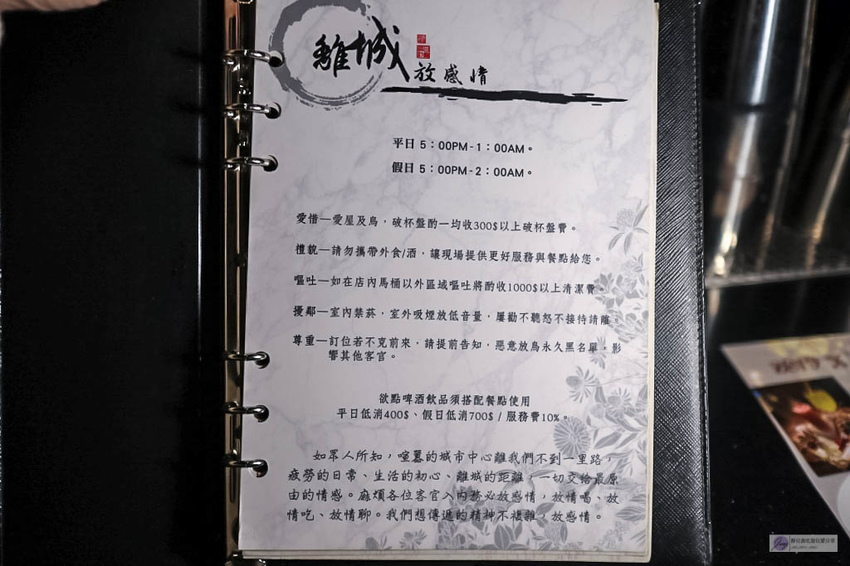 離城
放感情
平日 5：00PM-1：00AM。
假日 5：00PM-2：00AM。
愛惜—愛屋及烏，破杯盤酌一均收300$以上破杯盤費。
禮貌—請勿攜帶外食/酒，讓現場提供更好服務與餐點給您。
嘔吐—如在店內馬桶以外區域嘔吐將酌收1000$以上清潔費。
擾鄰—室內禁菸，室外吸煙放低音量，屢勸不聽恕不接待請離。
尊重—訂位若不克前來，請提前告知，惡意放鳥永久黑名單。影
響其他客官。
欲點啤酒飲品須搭配餐點使用
平日低消400$、假日低消700$ / 服務費10%。
如眾人所知，喧囂的城市中心離我們不到一里路，
疲勞的日常、生活的初心、離城的距離，一切交給最原
由的情感。麻煩各位客官入內務必放感情，放情喝、放
情吃、放情聊。我們想傳遞的精神不複雜，放感情。